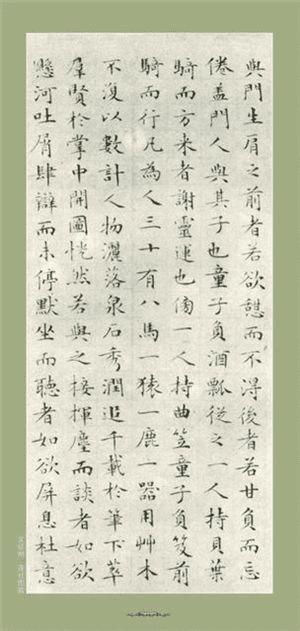 與門生肩之前者若欲憩而不得後者若甘負而忘
倦蓋門人與其子也童子負酒瓢從之一人持貝葉
騎而方來者謝靈運也傍一人持曲笠童子負笈前
騎而行凡為人三十有八馬一猿一鹿一器用艸木
不復以數計人物灑落泉石秀潤追千載於筆下萃
羣賢於掌中開圖恍然若與之接揮麈而談者如欲
懸河吐屑肆辯而未停默坐而聽者如欲屏息杜意
文徵明 蓮社圖記